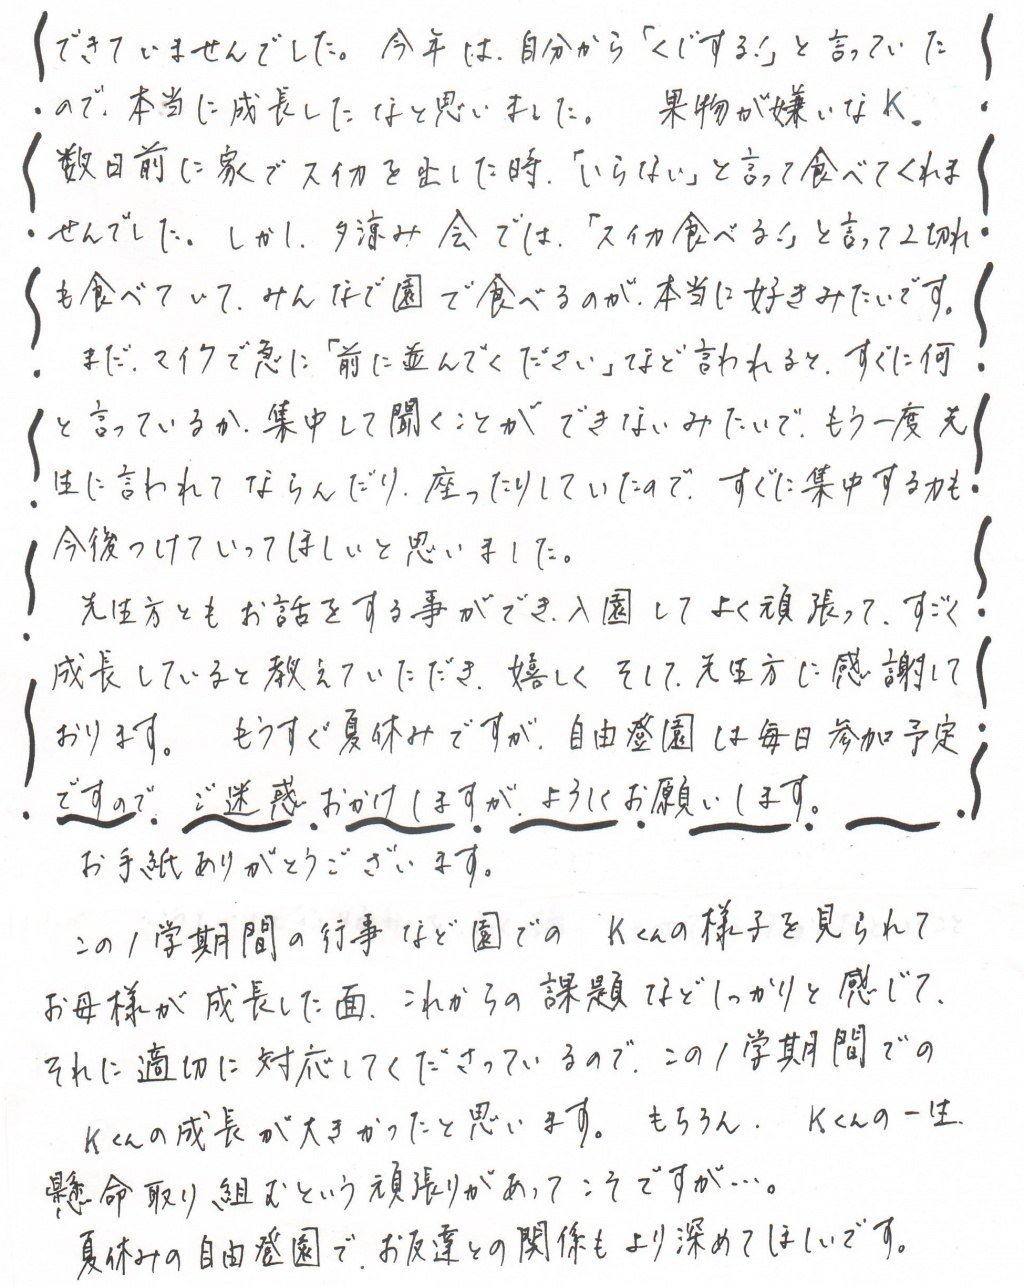 できていませんでした。今年は、自分から「くじする！」と言っていた
ので、本当に成長したなと思いました。　果物が嫌いなK。
数日前に家でスイカを出した時、「いらない」と言って食べてくれま
せんでした。しかし、夕涼み会では、「スイカ食べる！」と言って2切れ
も食べていて、みんなで園で食べるのが、本当に好きみたいです。
まだ、マイクで急に「前に並んでください」など言われると、すぐに何
と言っているか、集中して聞くことができないみたいで、もう一度先
生に言われてならんだり、座ったりしていたので、すぐに集中する力も
今後つけていってほしいと思いました。
先生方ともお話をする事ができ、入園してよく頑張って、すごく
成長していると教えていただき、嬉しくそして、先生方に感謝して
おります。　もうすぐ夏休みですが、自由登園は毎日参加予定
ですので、ご迷惑おかけしますが、よろしくお願いします。
お手紙ありがとうございます。
この1学期間の行事など園での　Kくんの様子を見られて
お母様が成長した面、これからの課題などしっかりと感じて、
それに適切に対応してくださっているので、この1学期間での
Kくんの成長が大きかったと思います。もちろん、Kくんの一生
懸命取り組むという頑張りがあってこそですが…。
夏休みの自由登園で、お友達との関係もより深めてほしいです。